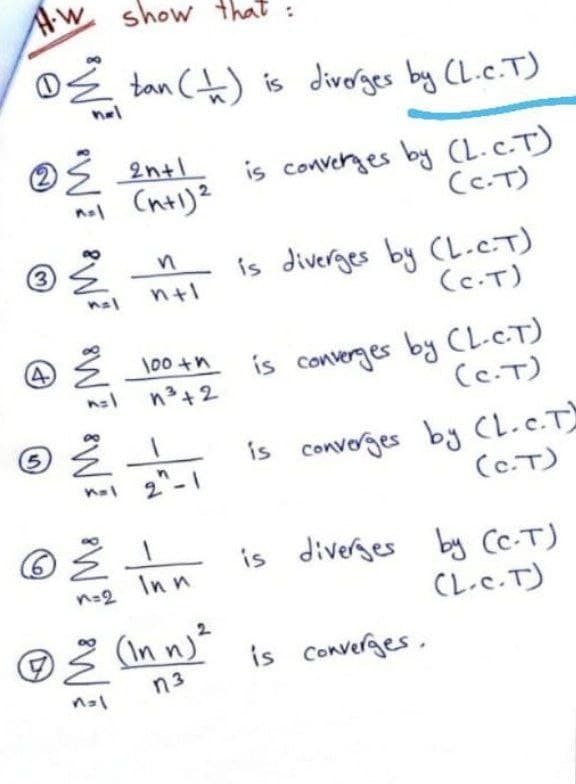 H.W show that :
① ∞∑n=1 tan(1/n) is diverges by (L.C.T)
② ∞∑n=1 2n+1/(n+1)² is converges by (L.C.T)
(C.T)
③ ∞∑n=1 n/n+1 is diverges by (L.C.T)
(C.T)
④ ∞∑n=1 100+n/n³+2 is converges by (L.C.T)
(C.T)
⑤ ∞∑n=1 1/2ⁿ-1 is converges by (L.C.T)
(C.T)
⑥ ∞∑n=2 1/ln n is diverges by (C.T)
(L.C.T)
⑦ ∞∑n=1 (ln n)²/n³ is converges.